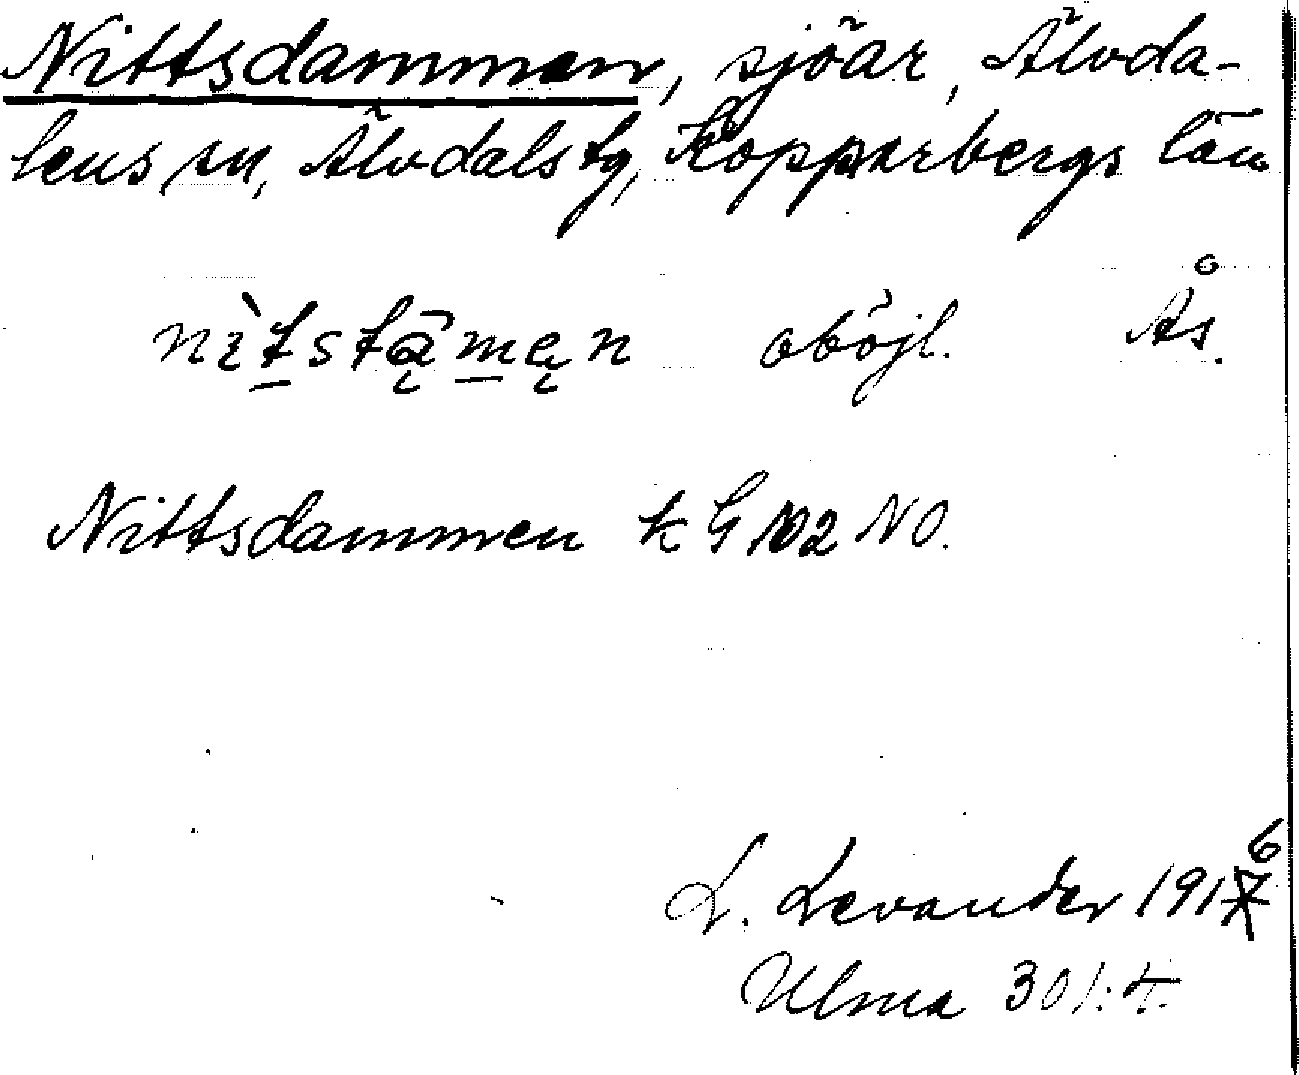 Nittsdammen, sjöar, Älvda-
lens sn, Älvdals tg, Kopparbergs län
nìtstāmęn oböjl. Ås.
Nittsdammen k G 102 NO.
L. Levander 1916
Ulma 301:4.